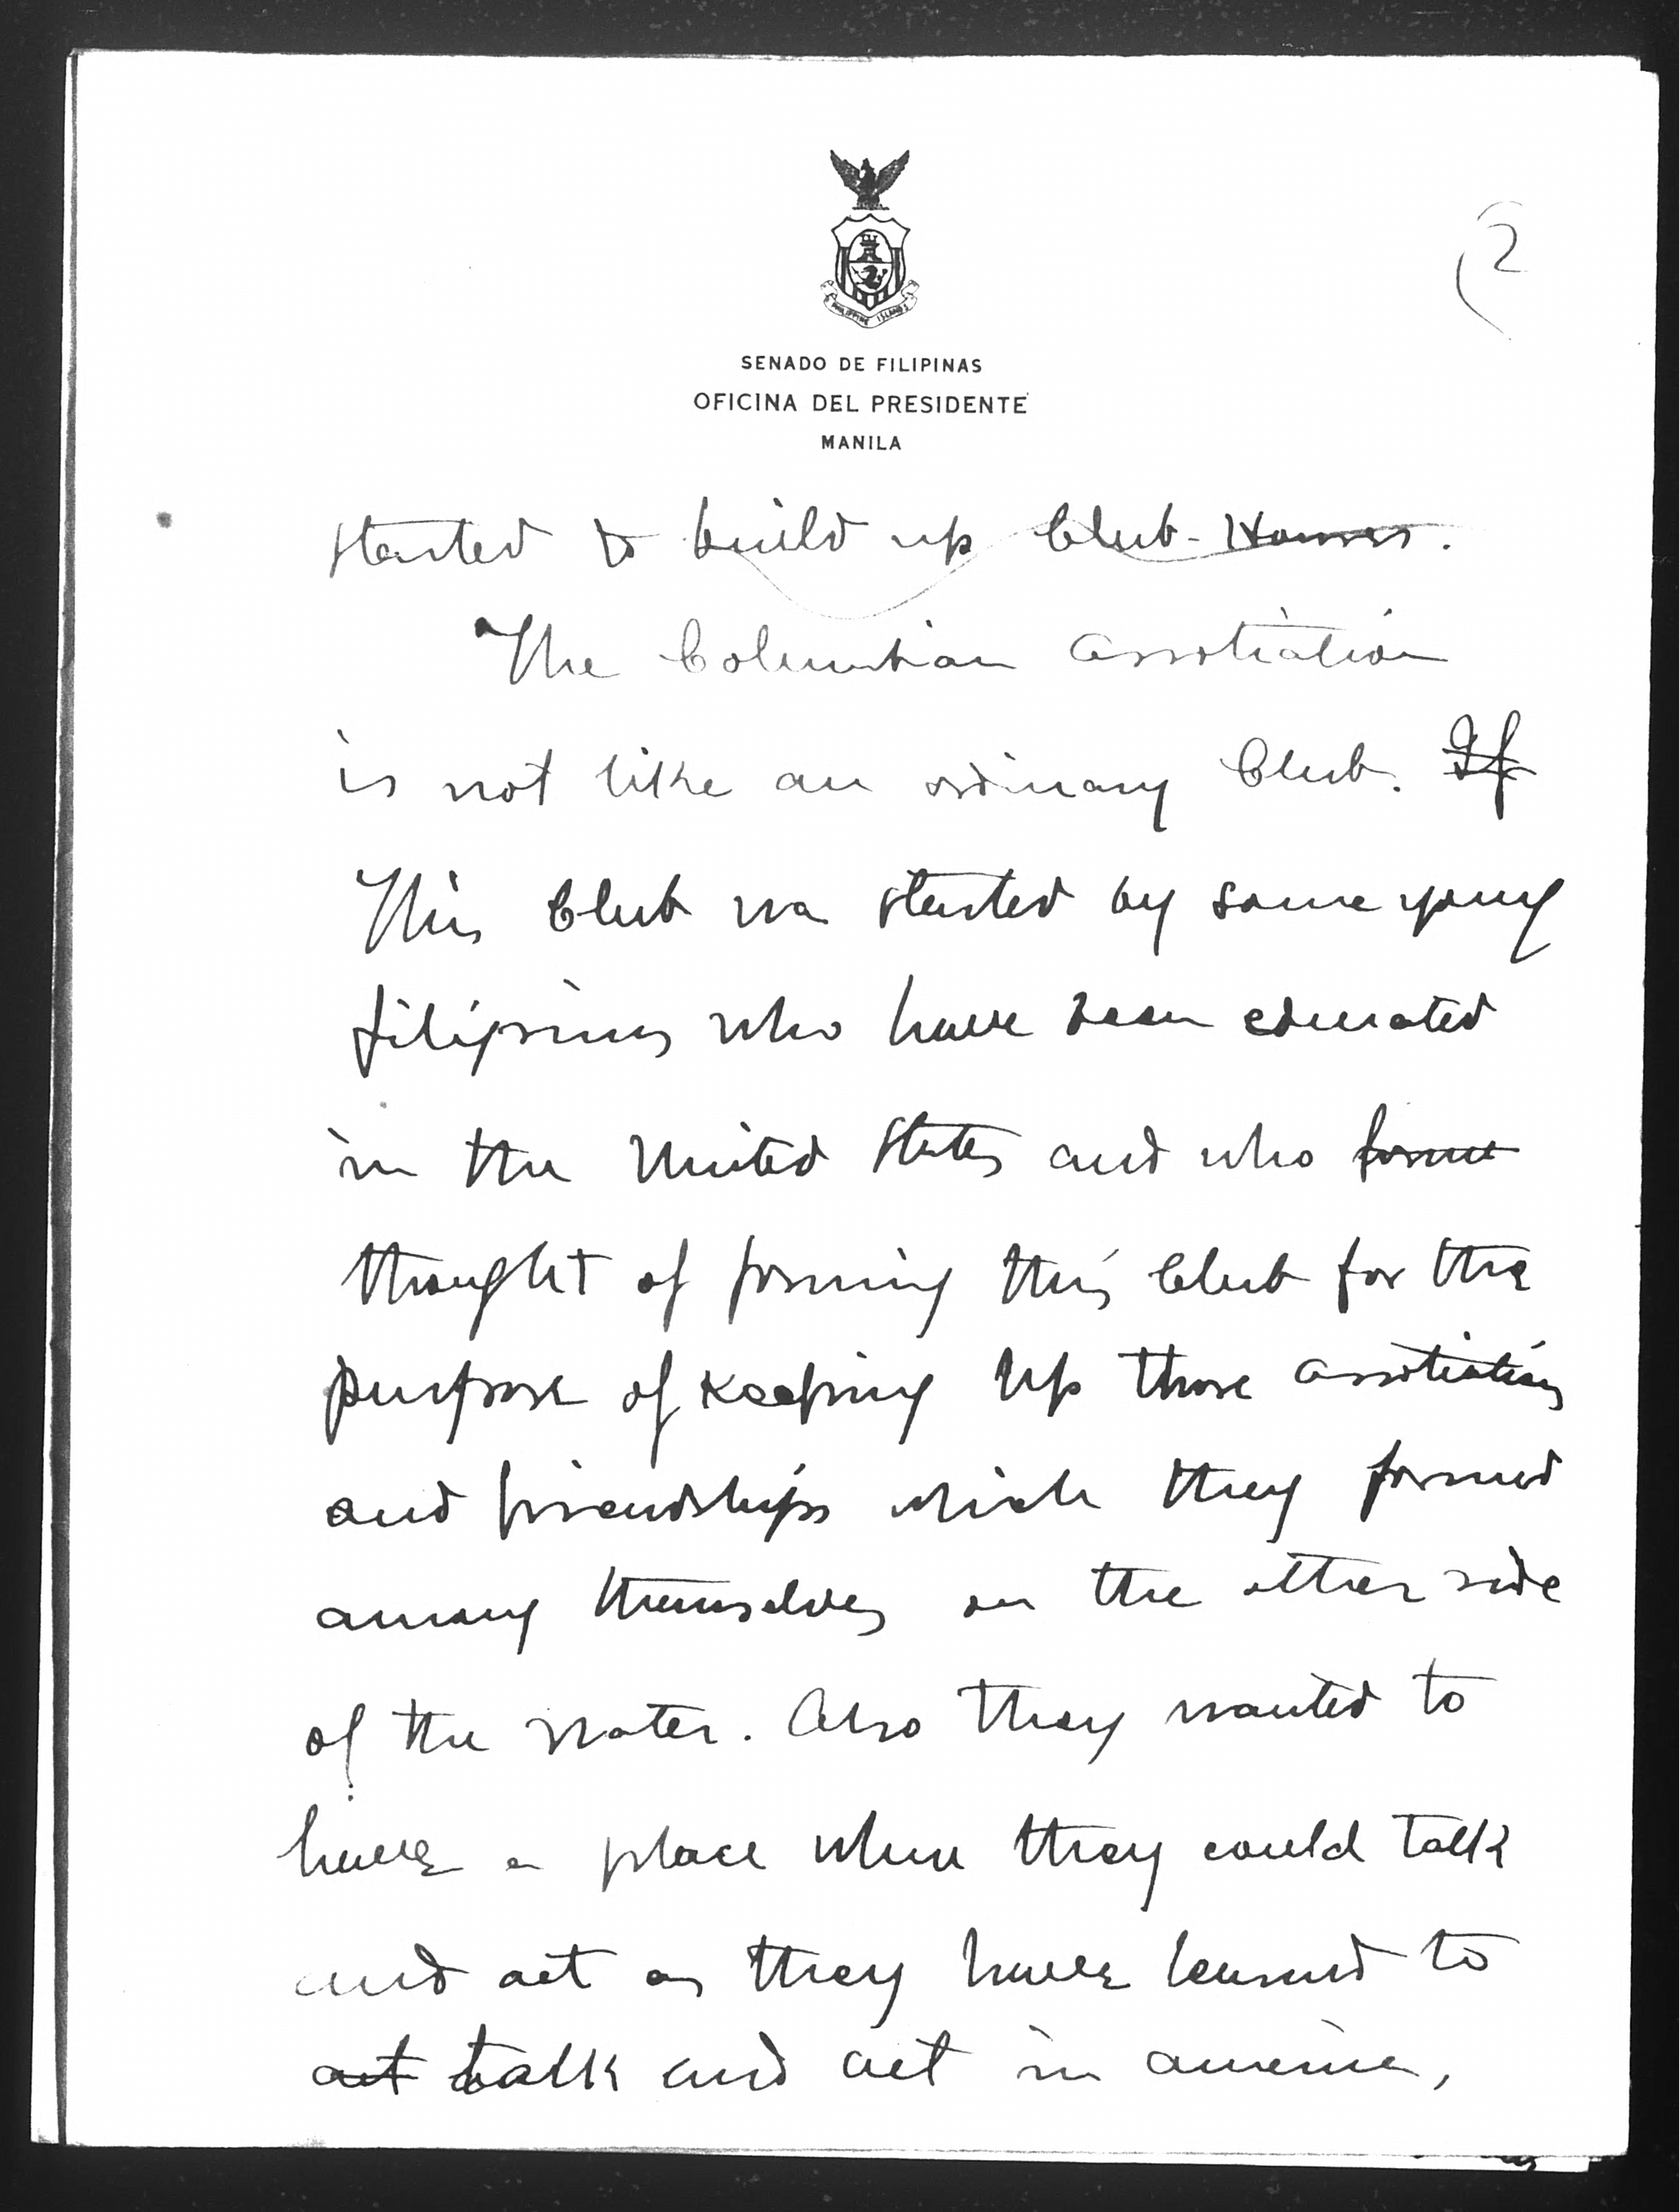 2
PHILIPPINE ISLANDS
SENADO DE FILIPINAS
OFICINA DEL PRESIDENTE
MANILA
started to build up Club-Houses.
The Columbian Association
is not like an ordinary Club. If
This Club wa started by some young
filipinos who have been educated
in the United States and who form
thought of forming this Club for the
purpose of keeping up those associations
and friendships which they formed
among themselves on the other side
of the water. Also they wanted to
have a place where they could talk
and act as they have learned to
act talk and act in america,